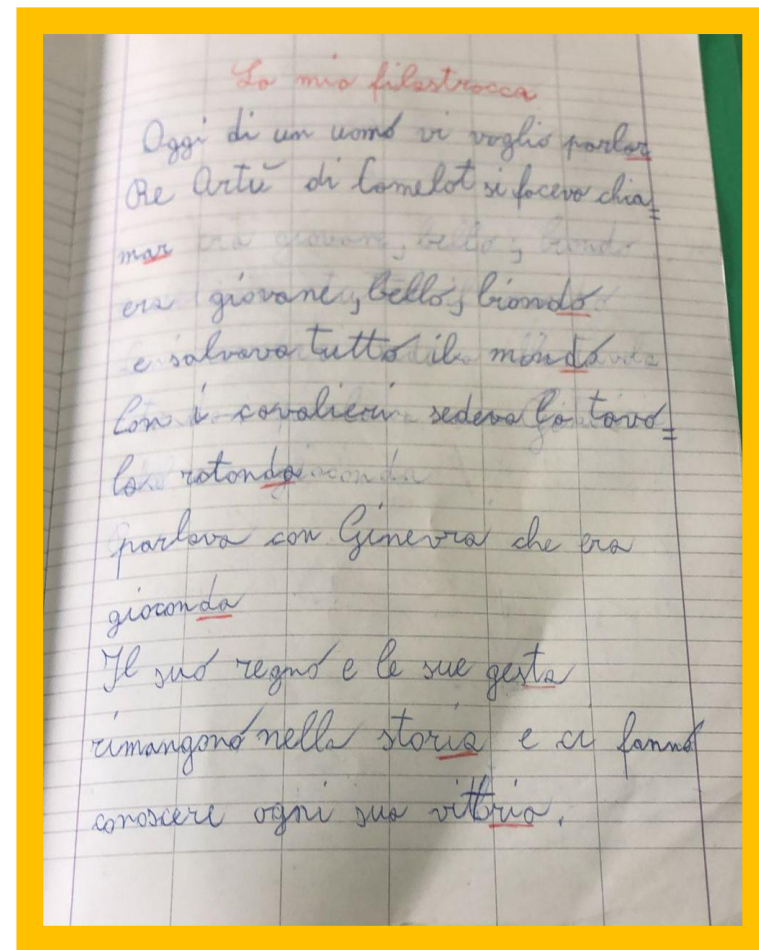 La mia filastrocca
Oggi di un uomo vi voglio parlar
Re Artù di Camelot si faceva chia=
mar
era giovane, bello, biondo
e salvava tutto il mondo
Con i cavalieri sedeva la tavo=
la rotonda
parlava con Ginevra che era
gioconda
Il suo regno e le sue gesta
rimangono nella storia e ci fanno
conoscere ogni sua vittoria.